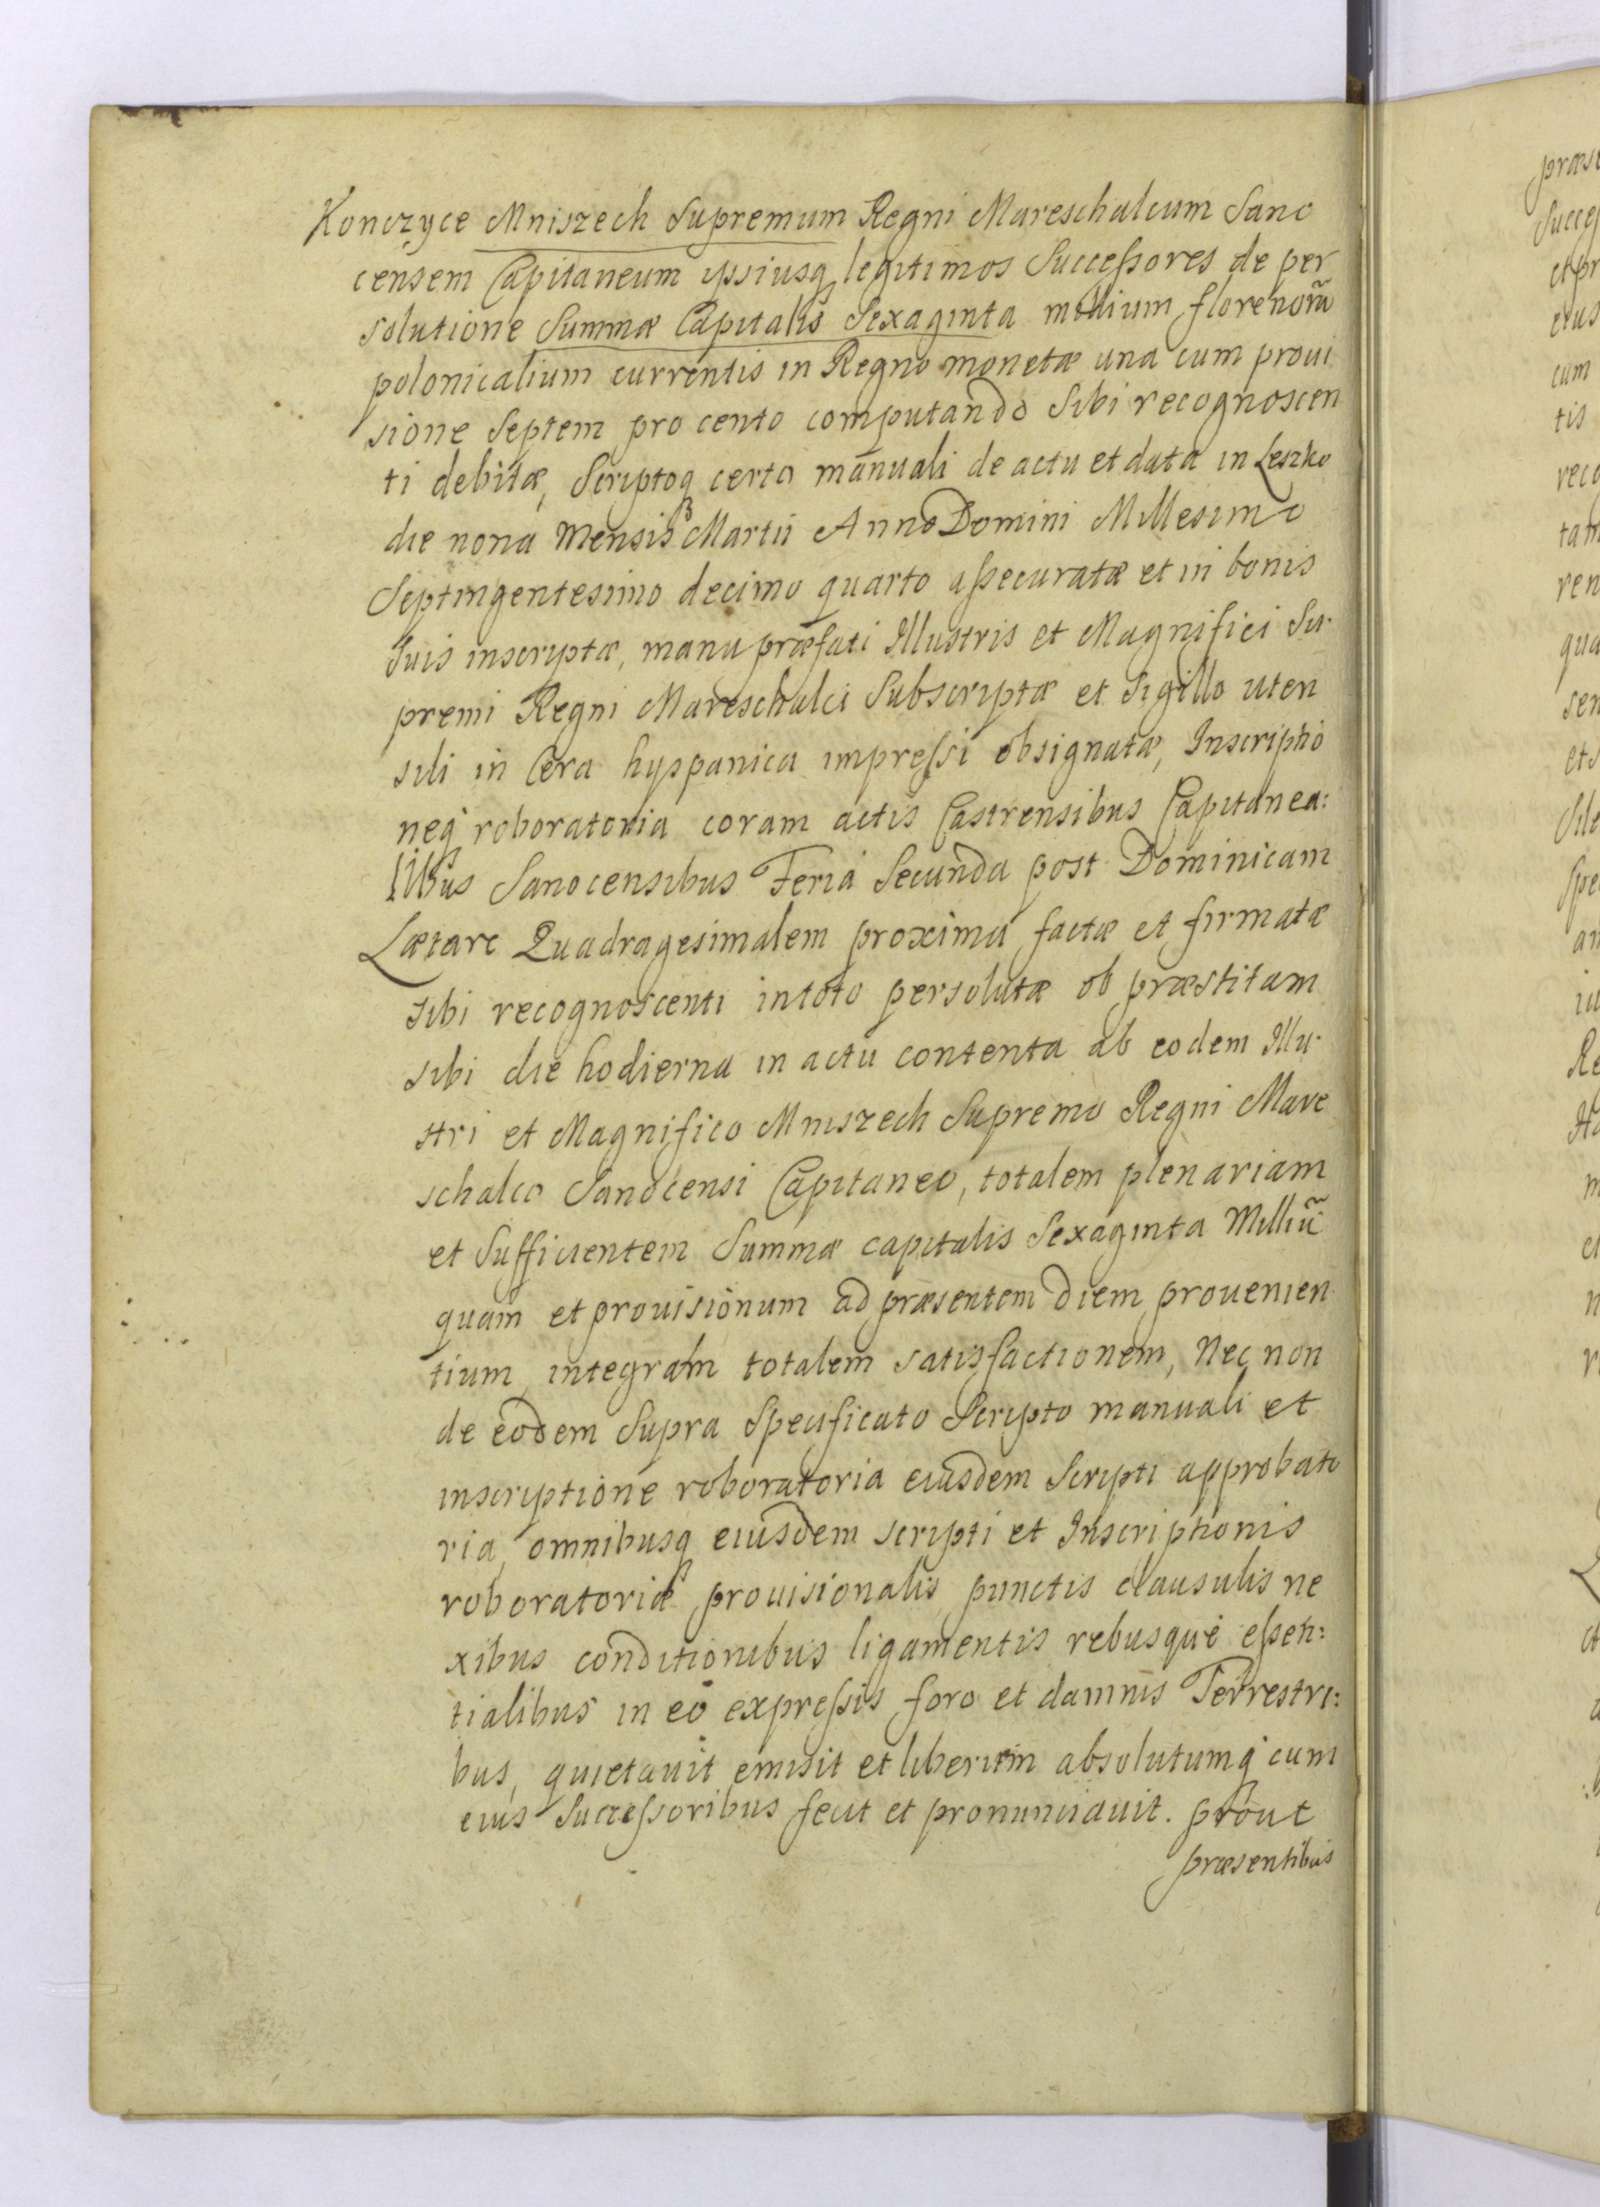 Konczyce Mniszech Supremum Regni Mareschalcum Sano
censem Capitaneum ipsiusq legitimos Successores de per
solutione Summæ Capitalis Sexaginta millium florenorũ
polonicalium currentis in Regno monetæ una cum proui
sione Septem pro cento computando Sibi recognoscen
ti debitæ, Scriptoq certo manuali de actu et data in Leszko
die nona Mensis Martii Anno Domini Millesimo
Septingentesimo decimo quarto assecuratæ et in bonis
Suis inscriptæ, manu præfati Illustris et Magnifici Su
premi Regni Mareschalci Subscriptæ et Sigillo uten
sili in Cera hyspanica impressi obsignatæ, Inscriptio
neq roboratoria coram actis Castrensibus Capitanea:
libus Sanocensibus Feria Secunda post Dominicam
Lætare Quadragesimalem proxima factæ et firmatæ
sibi recognoscenti in toto persolutæ ob præstitam
sibi die hodierna in actu contenta ab eodem Illu
stri et Magnifico Mniszech Supremo Regni Mare
schalco Sanocensi Capitaneo, totalem plenariam
et Sufficientem Summæ capitalis Sexaginta Milliũ
quam et prouisionum ad præsentem diem prouenien
tium integram totalem satisfactionem, Nec non
de eodem Supra Specificato Scripto manuali et
inscriptione roboratoria eiusdem Scripti approbato
ria, omnibusq eiusdem scripti et Inscriptionis
roboratoriæ prouisionalis punctis clausulis ne
xibus conditionibus ligamentis rebusque essen:
tialibus in eo expressis foro et damnis Terrestri:
bus, quietauit emisit et liberum absolutumq cum
eius Successoribus fecit et pronunciauit. prout
præsentibus